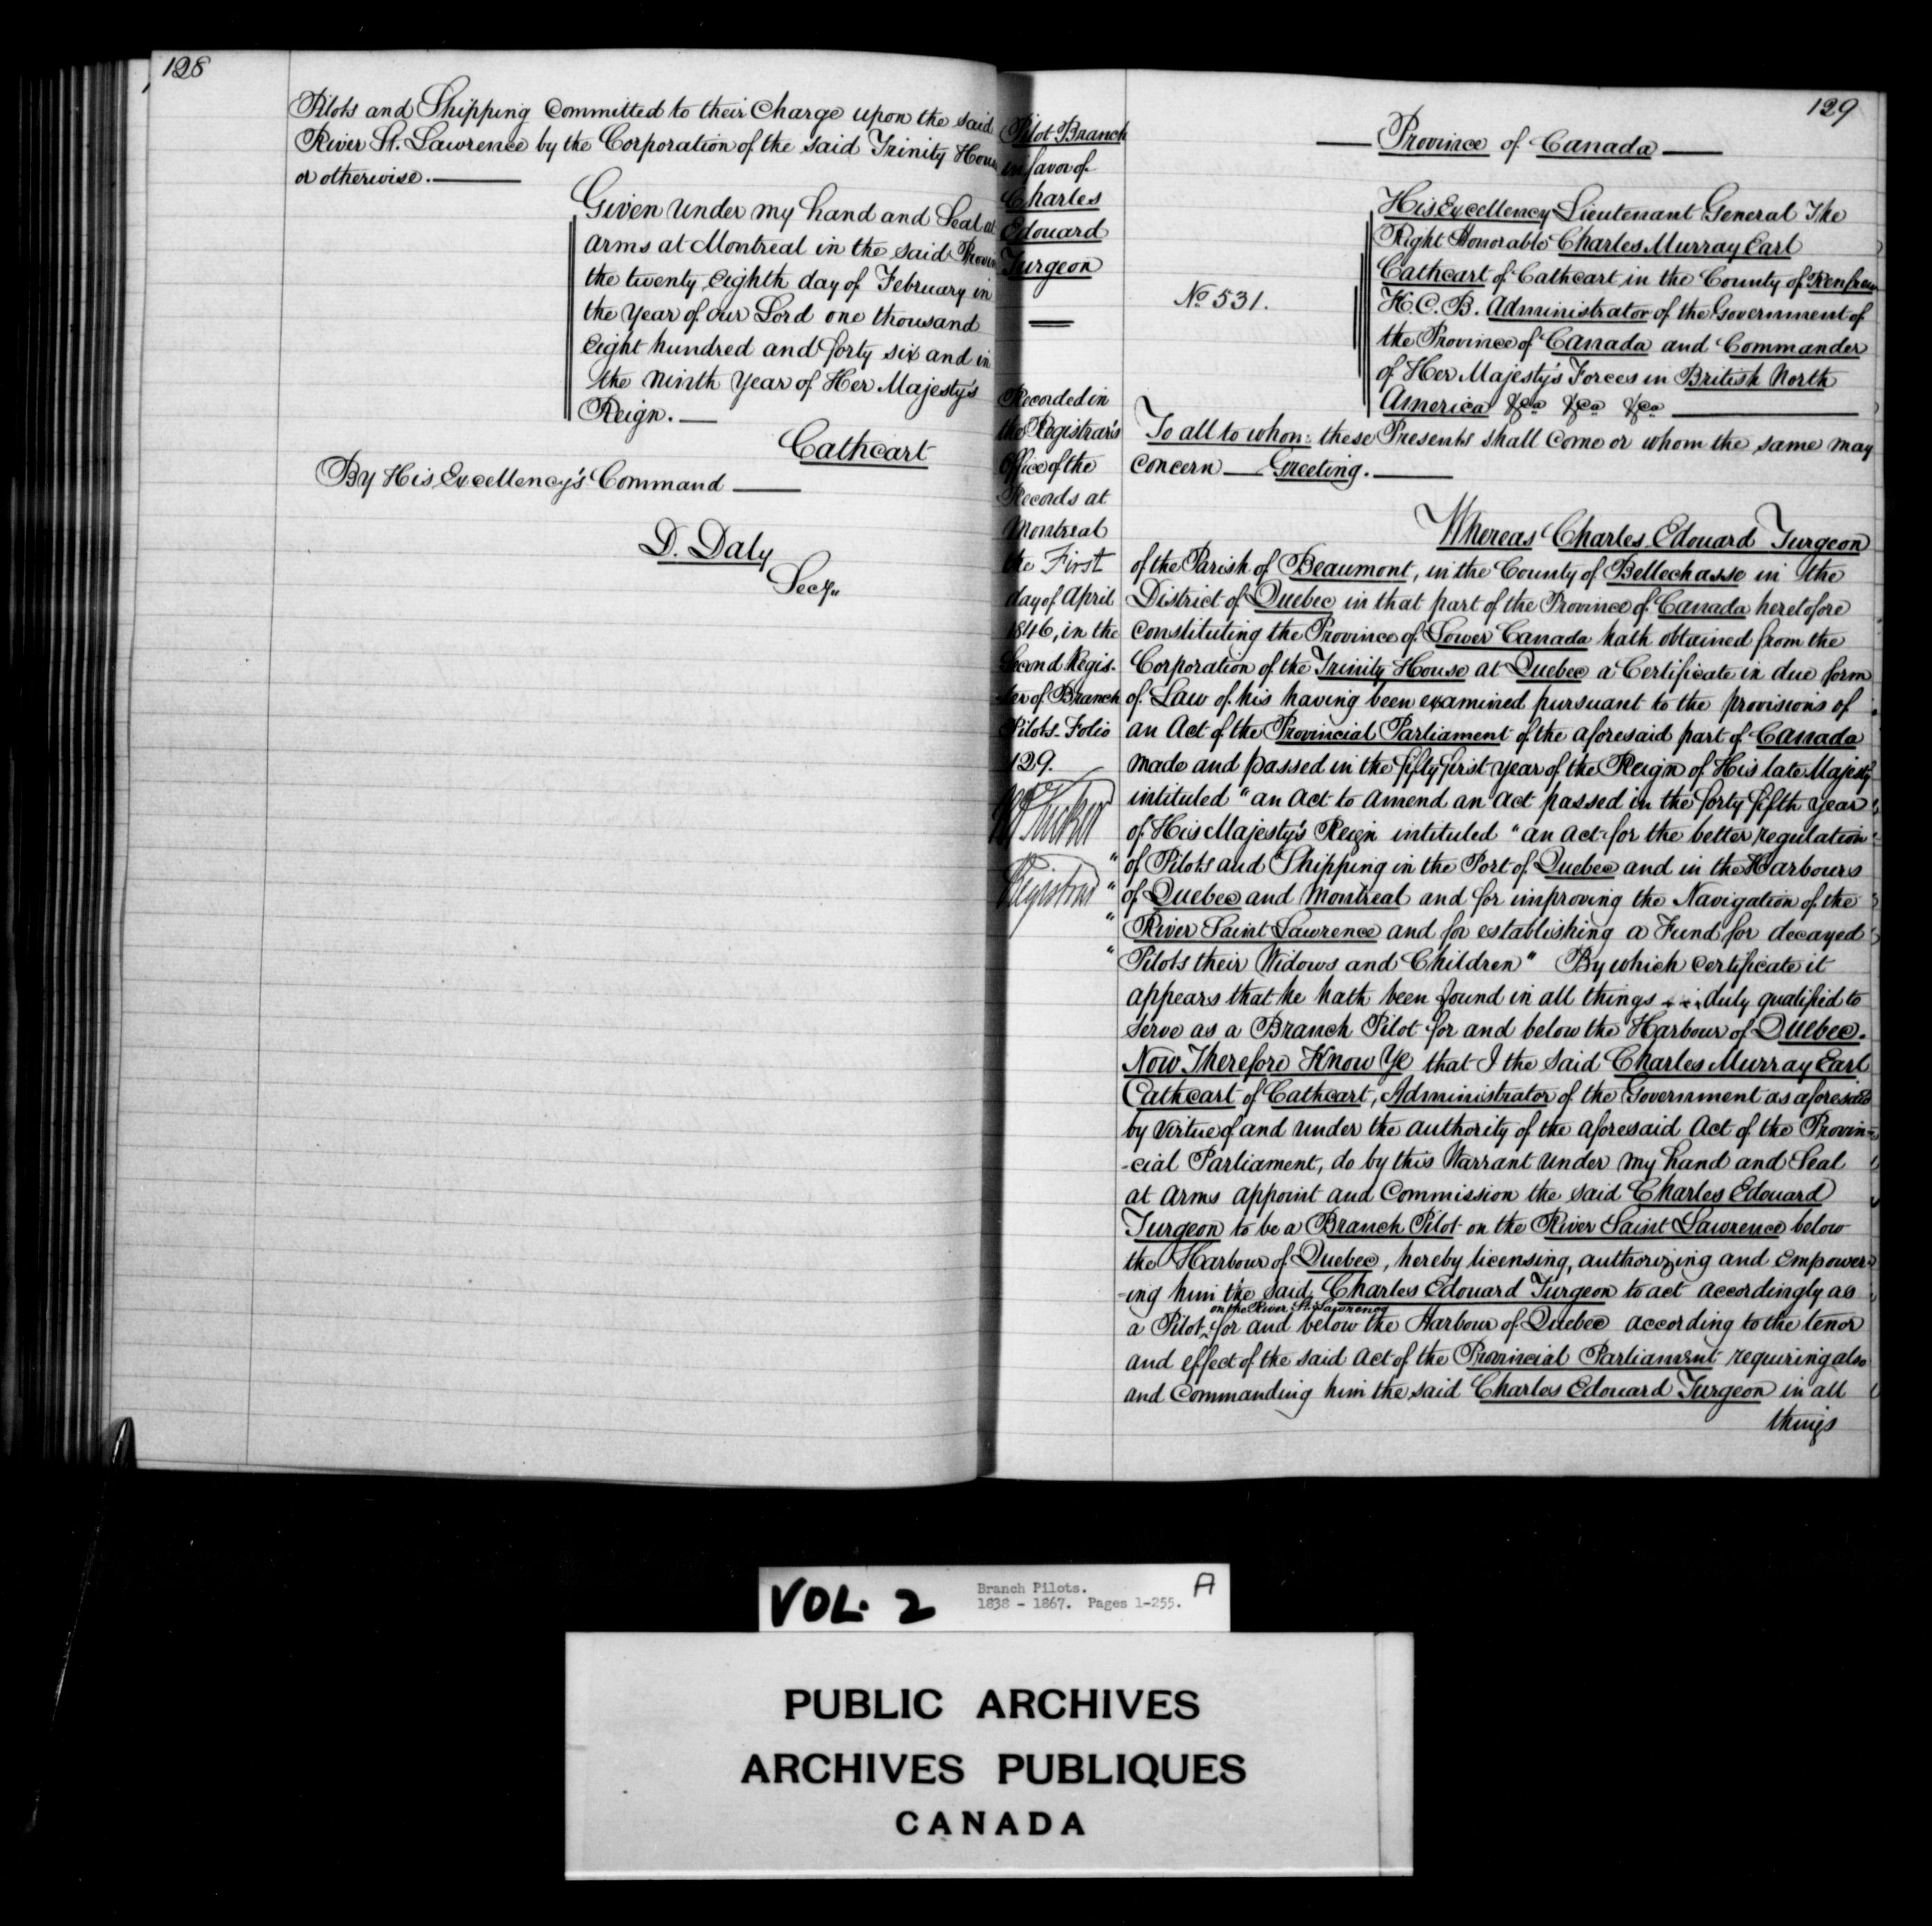 128
Pilots and Shipping Committed to their Charge upon the said
River St. Lawrence by the Corporation of the said Trinity House
or otherwise.
Given under my hand and Seal at
arms at Montreal in the said
the twenty Eighth day of February in
the Year of our Lord one thousand
Eight hundred and forty six and in
the Ninth Year of Her Majesty's
Reign.
Cathcart
By His Excellency's Command
D. Daly
Secy.
129
Pilot Branch
in favor of
Charles
Edouard
Turgeon
Recorded in
the Registrar's
Office of the
Records at
Montreal
the First
day of April
1846, in the
Second Regis-
ter of Branch
Pilots. Folio
129.
Registrar
Province of Canada
No. 531.
His Excellency Lieutenant General The
Right Honorable Charles Murray Earl
Cathcart of Cathcart in the County of Renfrew
K.C.B. Administrator of the Government of
the Province of Canada and Commander
of Her Majesty's Forces in British North
America &ca &ca &ca
To all to whom these Presents shall Come or whom the same may
concern Greeting.
Whereas Charles Edouard Turgeon
of the Parish of Beaumont, in the County of Bellechasse in the
District of Quebec in that part of the Province of Canada heretofore
constituting the Province of Lower Canada hath obtained from the
Corporation of the Trinity House at Quebec a Certificate in due form
of Law of his having been examined pursuant to the provisions of
an Act of the Provincial Parliament of the aforesaid part of Canada
made and passed in the fifty first year of the Reign of His late Majesty
intituled "an Act to amend an Act passed in the forty fifth Year
of His Majesty's Reign intituled "an act for the better regulation
" of Pilots and Shipping in the Port of Quebec and in the Harbours
" of Quebec and Montreal and for improving the Navigation of the
" River Saint Lawrence and for establishing a Fund for decayed
" Pilots their Widows and Children" By which certificate it
appears that he hath been found in all things duly qualified to
serve as a Branch Pilot for and below the Harbour of Quebec.
Now Therefore Know Ye that I the said Charles Murray Earl
Cathcart of Cathcart, Administrator of the Government as aforesaid
by virtue of and under the authority of the aforesaid Act of the Provin-
-cial Parliament, do by this Warrant under my hand and Seal
at arms appoint and Commission the said Charles Edouard
Turgeon to be a Branch Pilot on the River Saint Lawrence below
the Harbour of Quebec, hereby licensing, authorizing and empower-
-ing him the said Charles Edouard Turgeon to act accordingly as
on the River St. Lawrence
a Pilot for and below the Harbour of Quebec according to the tenor
and effect of the said Act of the Provincial Parliament requiring also
and Commanding him the said Charles Edouard Turgeon in all
things
VOL. 2
Branch Pilots.
1838 - 1867. Pages 1-255.
A
PUBLIC ARCHIVES
ARCHIVES PUBLIQUES
CANADA